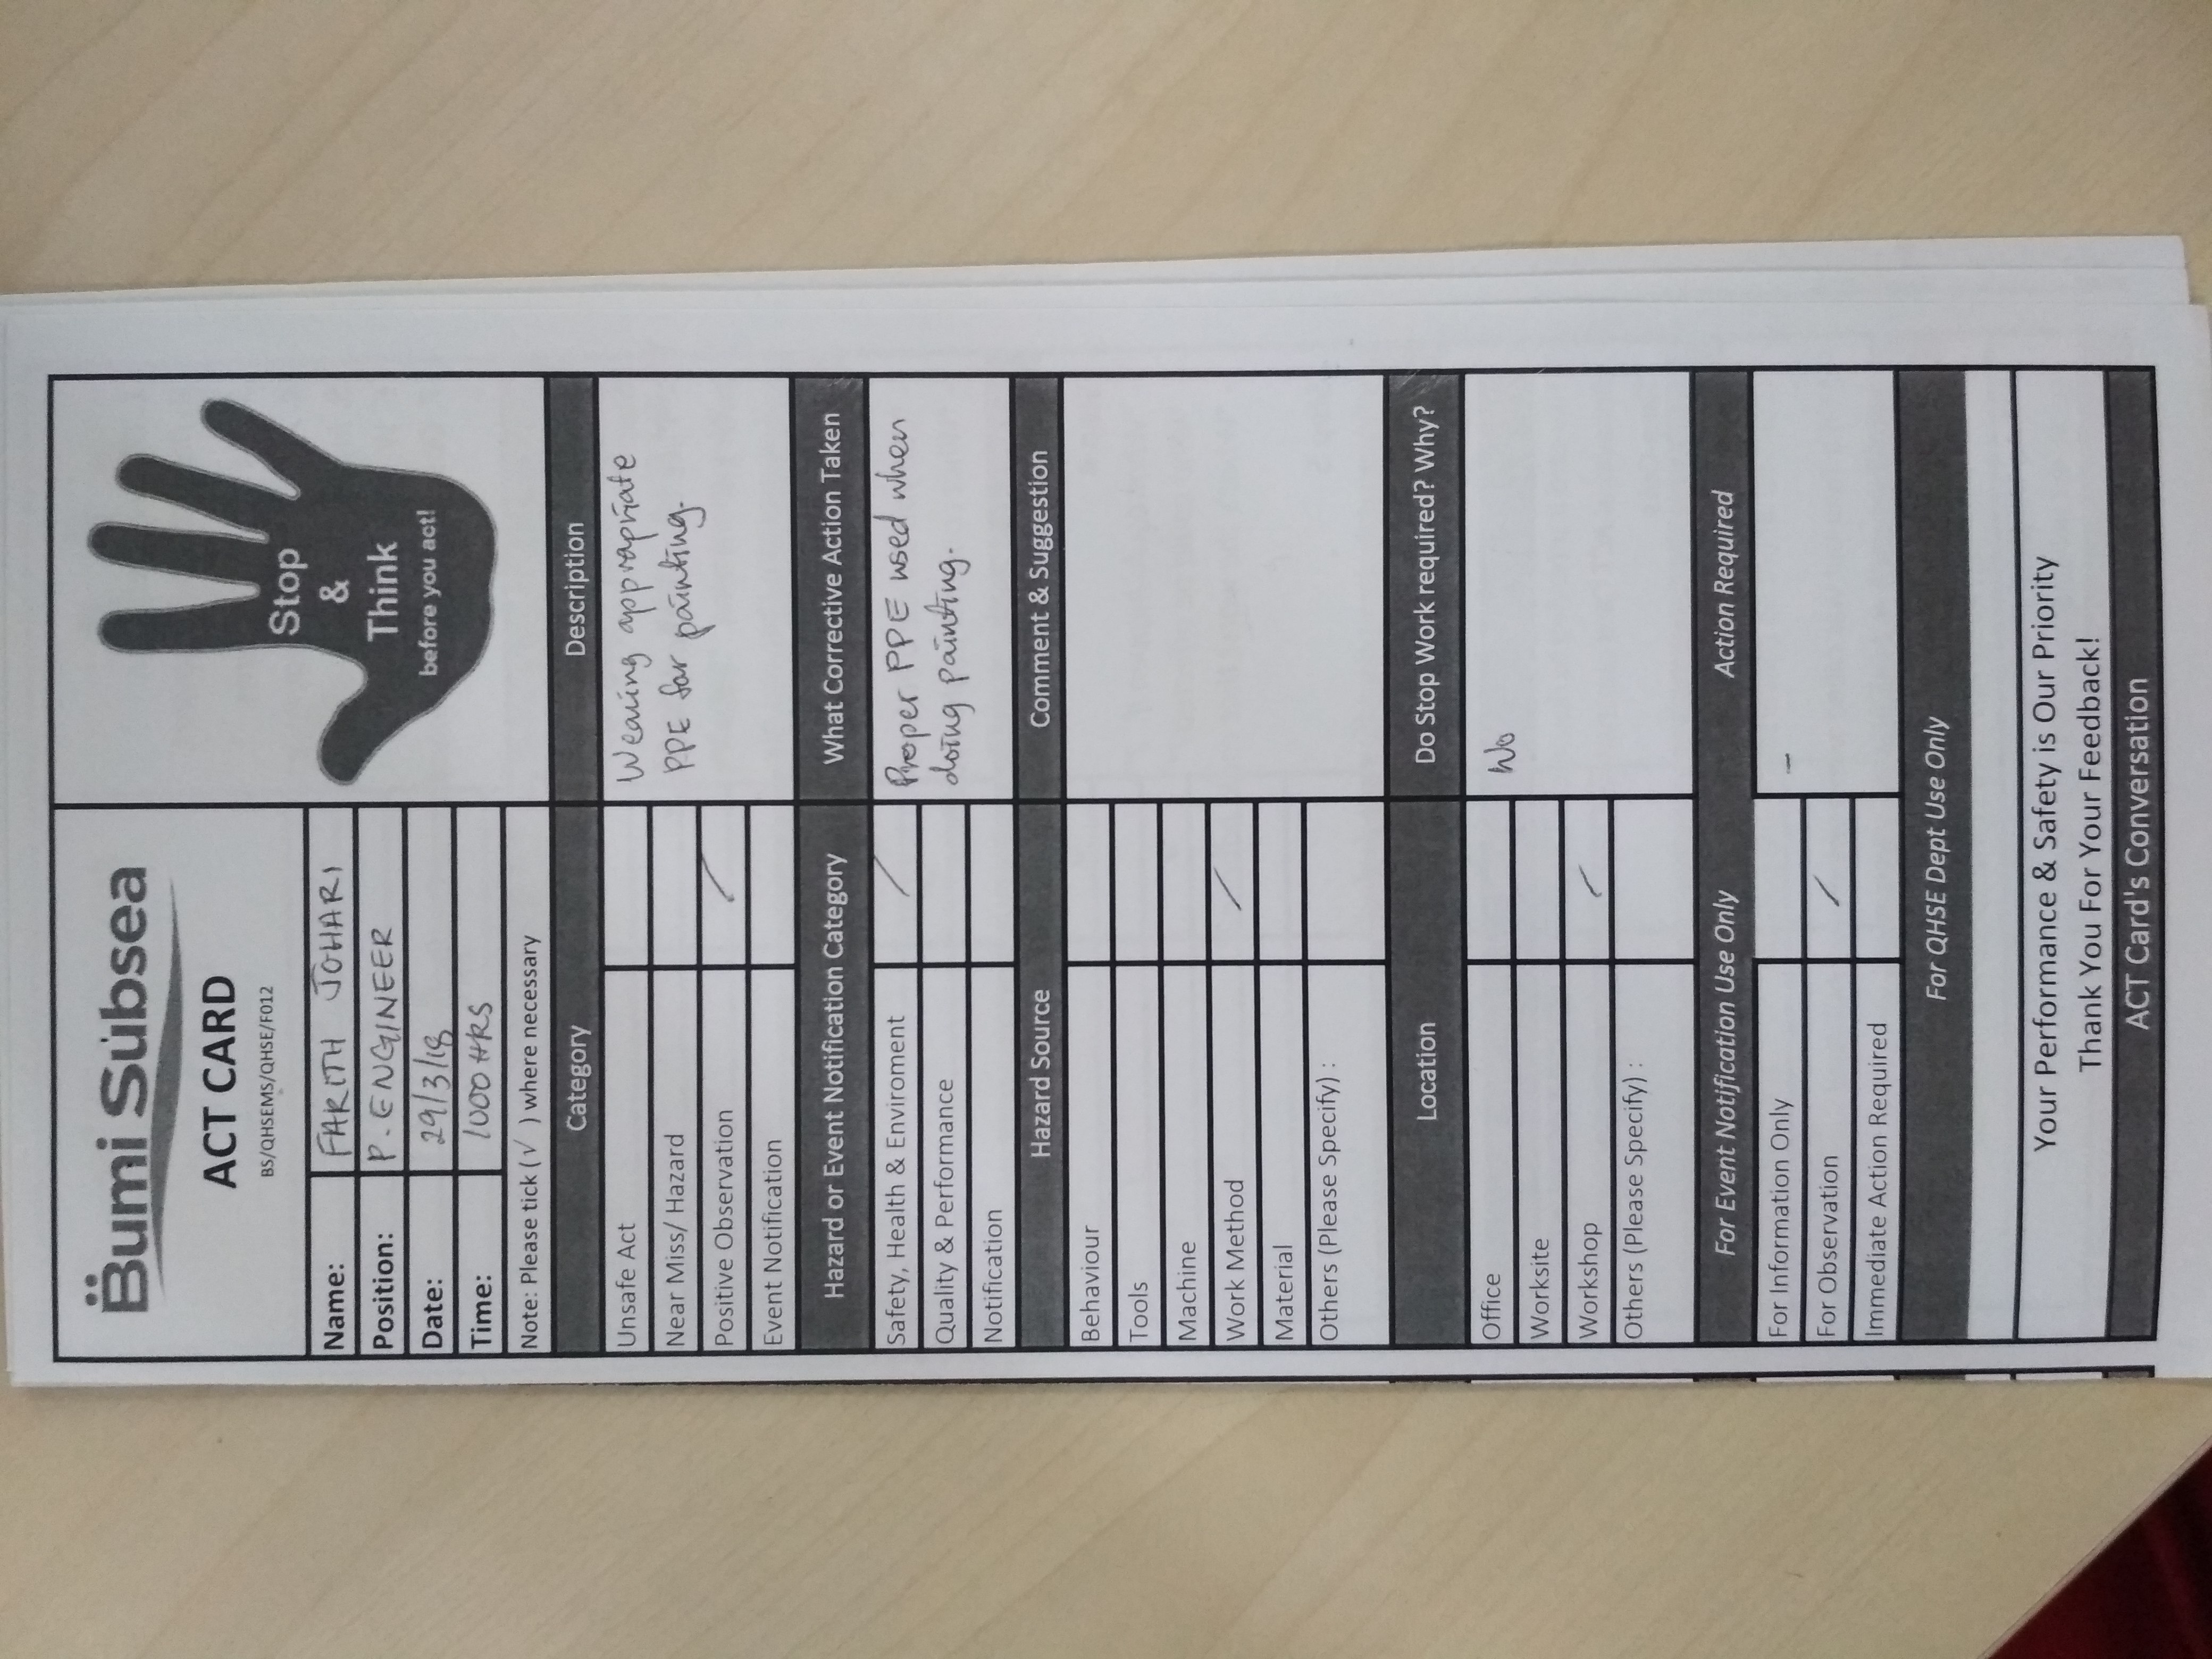 Bumi Subsea
ACT CARD
BS/QHSEMS/QHSE/F012
Stop
&
Think
before you act!
Name: FARITH JOHARI
Position: P. ENGINEER
Date: 29/3/18
Time: 1000 HRS
Note: Please tick (√ ) where necessary
Category Description
Unsafe Act
Near Miss/ Hazard
Positive Observation /
Event Notification
Wearing appropriate
PPE for painting.
Hazard or Event Notification Category What Corrective Action Taken
Safety, Health & Enviroment /
Quality & Performance
Notification
Proper PPE used when
doing painting.
Hazard Source Comment & Suggestion
Behaviour
Tools
Machine
Work Method /
Material
Others (Please Specify) :
Location Do Stop Work required? Why?
Office
Worksite
Workshop /
Others (Please Specify) :
No
For Event Notification Use Only Action Required
For Information Only
For Observation /
Immediate Action Required
-
For QHSE Dept Use Only
Your Performance & Safety is Our Priority
Thank You For Your Feedback!
ACT Card's Conversation